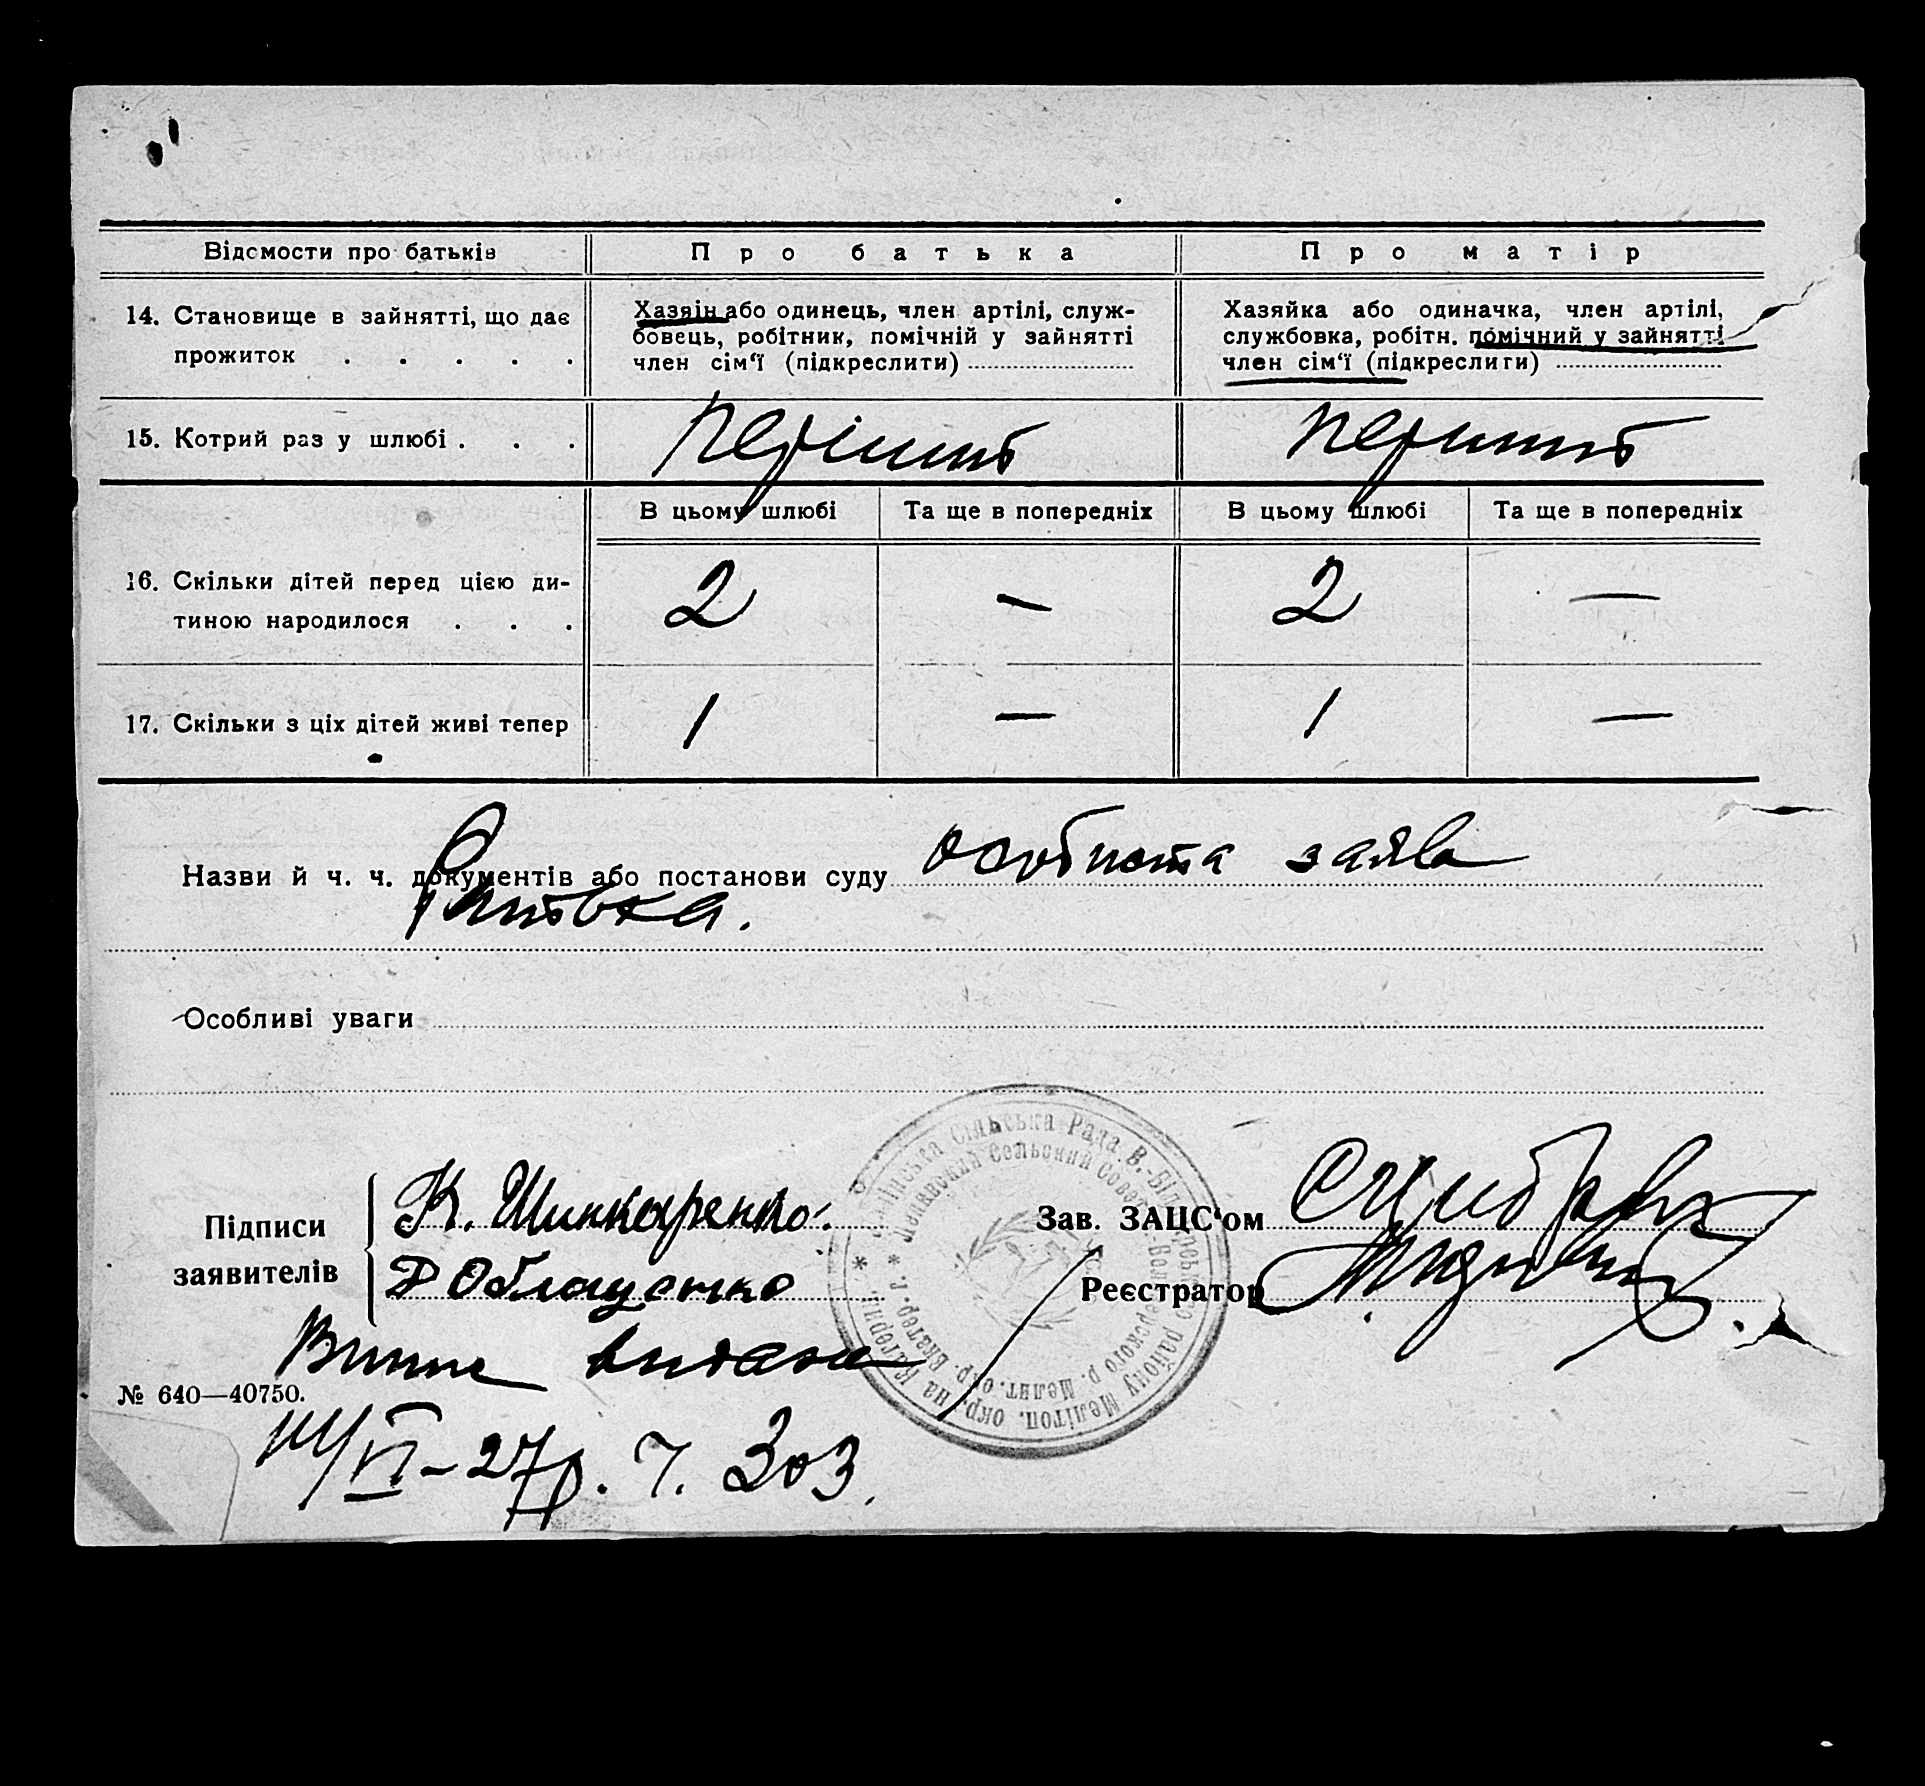 Відомости про батьків
Про батька
Про матір
14. Становище в зайнятті, що дає
прожиток . . . . .
Хазяїн або одинець, член артілі, служ-
бовець, робітник, помічній у зайнятті
член сім‘ї (підкреслити)
Хазяйка або одиначка, член артілі,
службовка, робітн. помічний у зайнятті
член сім‘ї (підкреслити)
15. Котрий раз у шлюбі . . .
В цьому шлюбі
Та ще в попередніх
В цьому шлюбі
Та ще в попередніх
16. Скільки дітей перед цією ди-
тиною народилося . . .
2
—
2
—
17. Скільки з ціх дітей живі тепер
1
—
1
—
Назви й ч. ч. документів або постанови суду особиста заява
Особливі уваги
Підписи
заявителів
К. Шинкаренко.
Д Облащенко
Зав. ЗАЦС‘ом
Реєстратор
№ 640—40750.
VI – 27 р. ч. 303.
Сільська Рада В.-Білозерського району Мелітоп. окр. на Катерин.
Ленинский Сельский Совет В.-Белозерского р. Мелит. окр. Екатер. г.